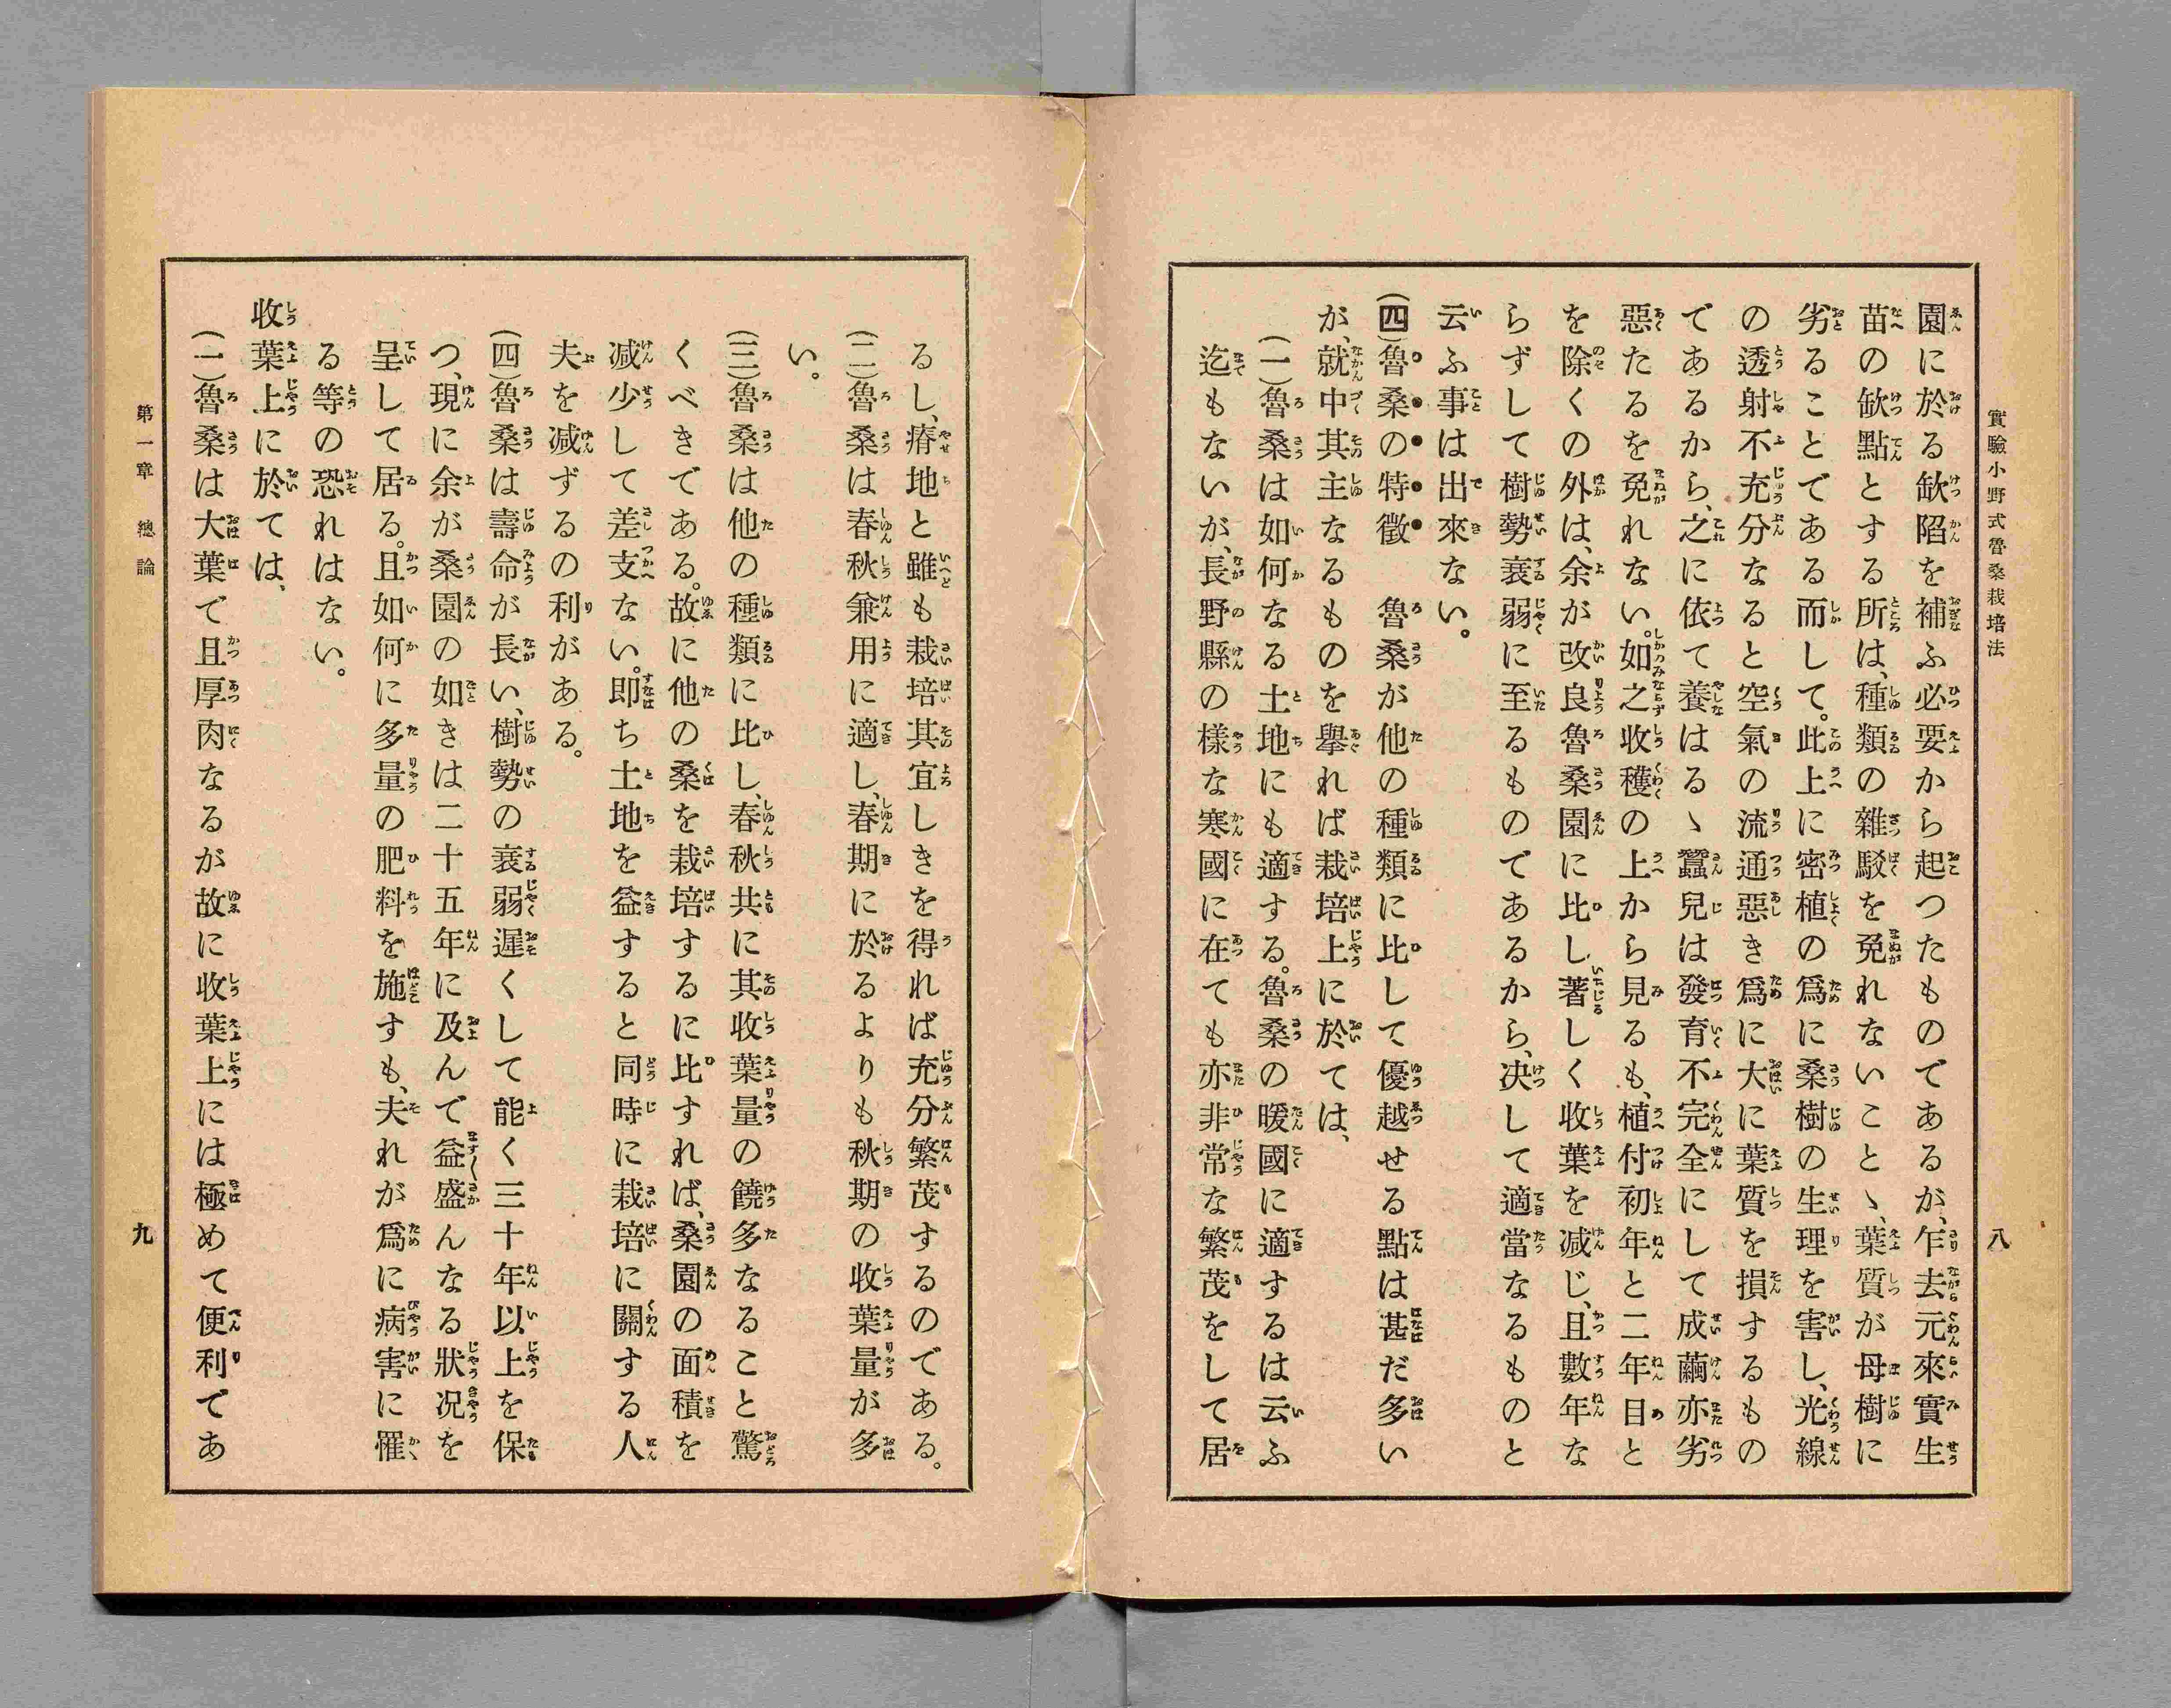 實驗小野式魯桑栽培法
八
園に於る缺陷を補ふ必要から起つたものであるが、乍去元來實生
苗の缺點とする所は、種類の雜駁を免れないことゝ、葉質が母樹に
劣ることである而して。此上に密植の爲めに桑樹の生理を害し、光線
の透射不充分なると空氣の流通惡き爲に大に葉質を損するもの
であるから、之に依て養はるゝ蠶兒は發育不完全にして成繭亦劣
惡たるを免れない。如之收穫の上から見るも、植付初年と二年目と
を除くの外は、余が改良魯桑園に比し著しく收葉を减じ、且數年な
らずして樹勢衰弱に至るものであるから、决して適當なるものと
云ふ事は出來ない。
(四)魯桑の特徵 魯桑が他の種類に比して優越せる點は甚だ多い
が、就中其主なるものを擧れば栽培上に於ては、
(一)魯桑は如何なる土地にも適する。魯桑の暖國に適するは云ふ
迄もないが、長野縣の樣な寒國に在ても亦非常な繁茂をして居
るし、瘠地と雖も栽培其宜しきを得れば充分繁茂するのである。
(二)魯桑は春秋兼用に適し、春期に於るよりも秋期の收葉量が多
い。
(三)魯桑は他の種類に比し、春秋共に其收葉量の饒多なること驚
くべきである。故に他の桑を栽培するに比すれば、桑園の面積を
减少して差支ない。即ち土地を益すると同時に栽培に關する人
夫を减ずるの利がある。
(四)魯桑は壽命が長い、樹勢の衰弱遲くして能く三十年以上を保
つ、現に余が桑園の如きは二十五年に及んで益盛んなる狀况を
呈して居る。且如何に多量の肥料を施すも、夫れが爲に病害に罹
る等の恐れはない。
收葉上に於ては、
(一)魯桑は大葉で且厚肉なるが故に收葉上には極めて便利であ
第一章 總論
九